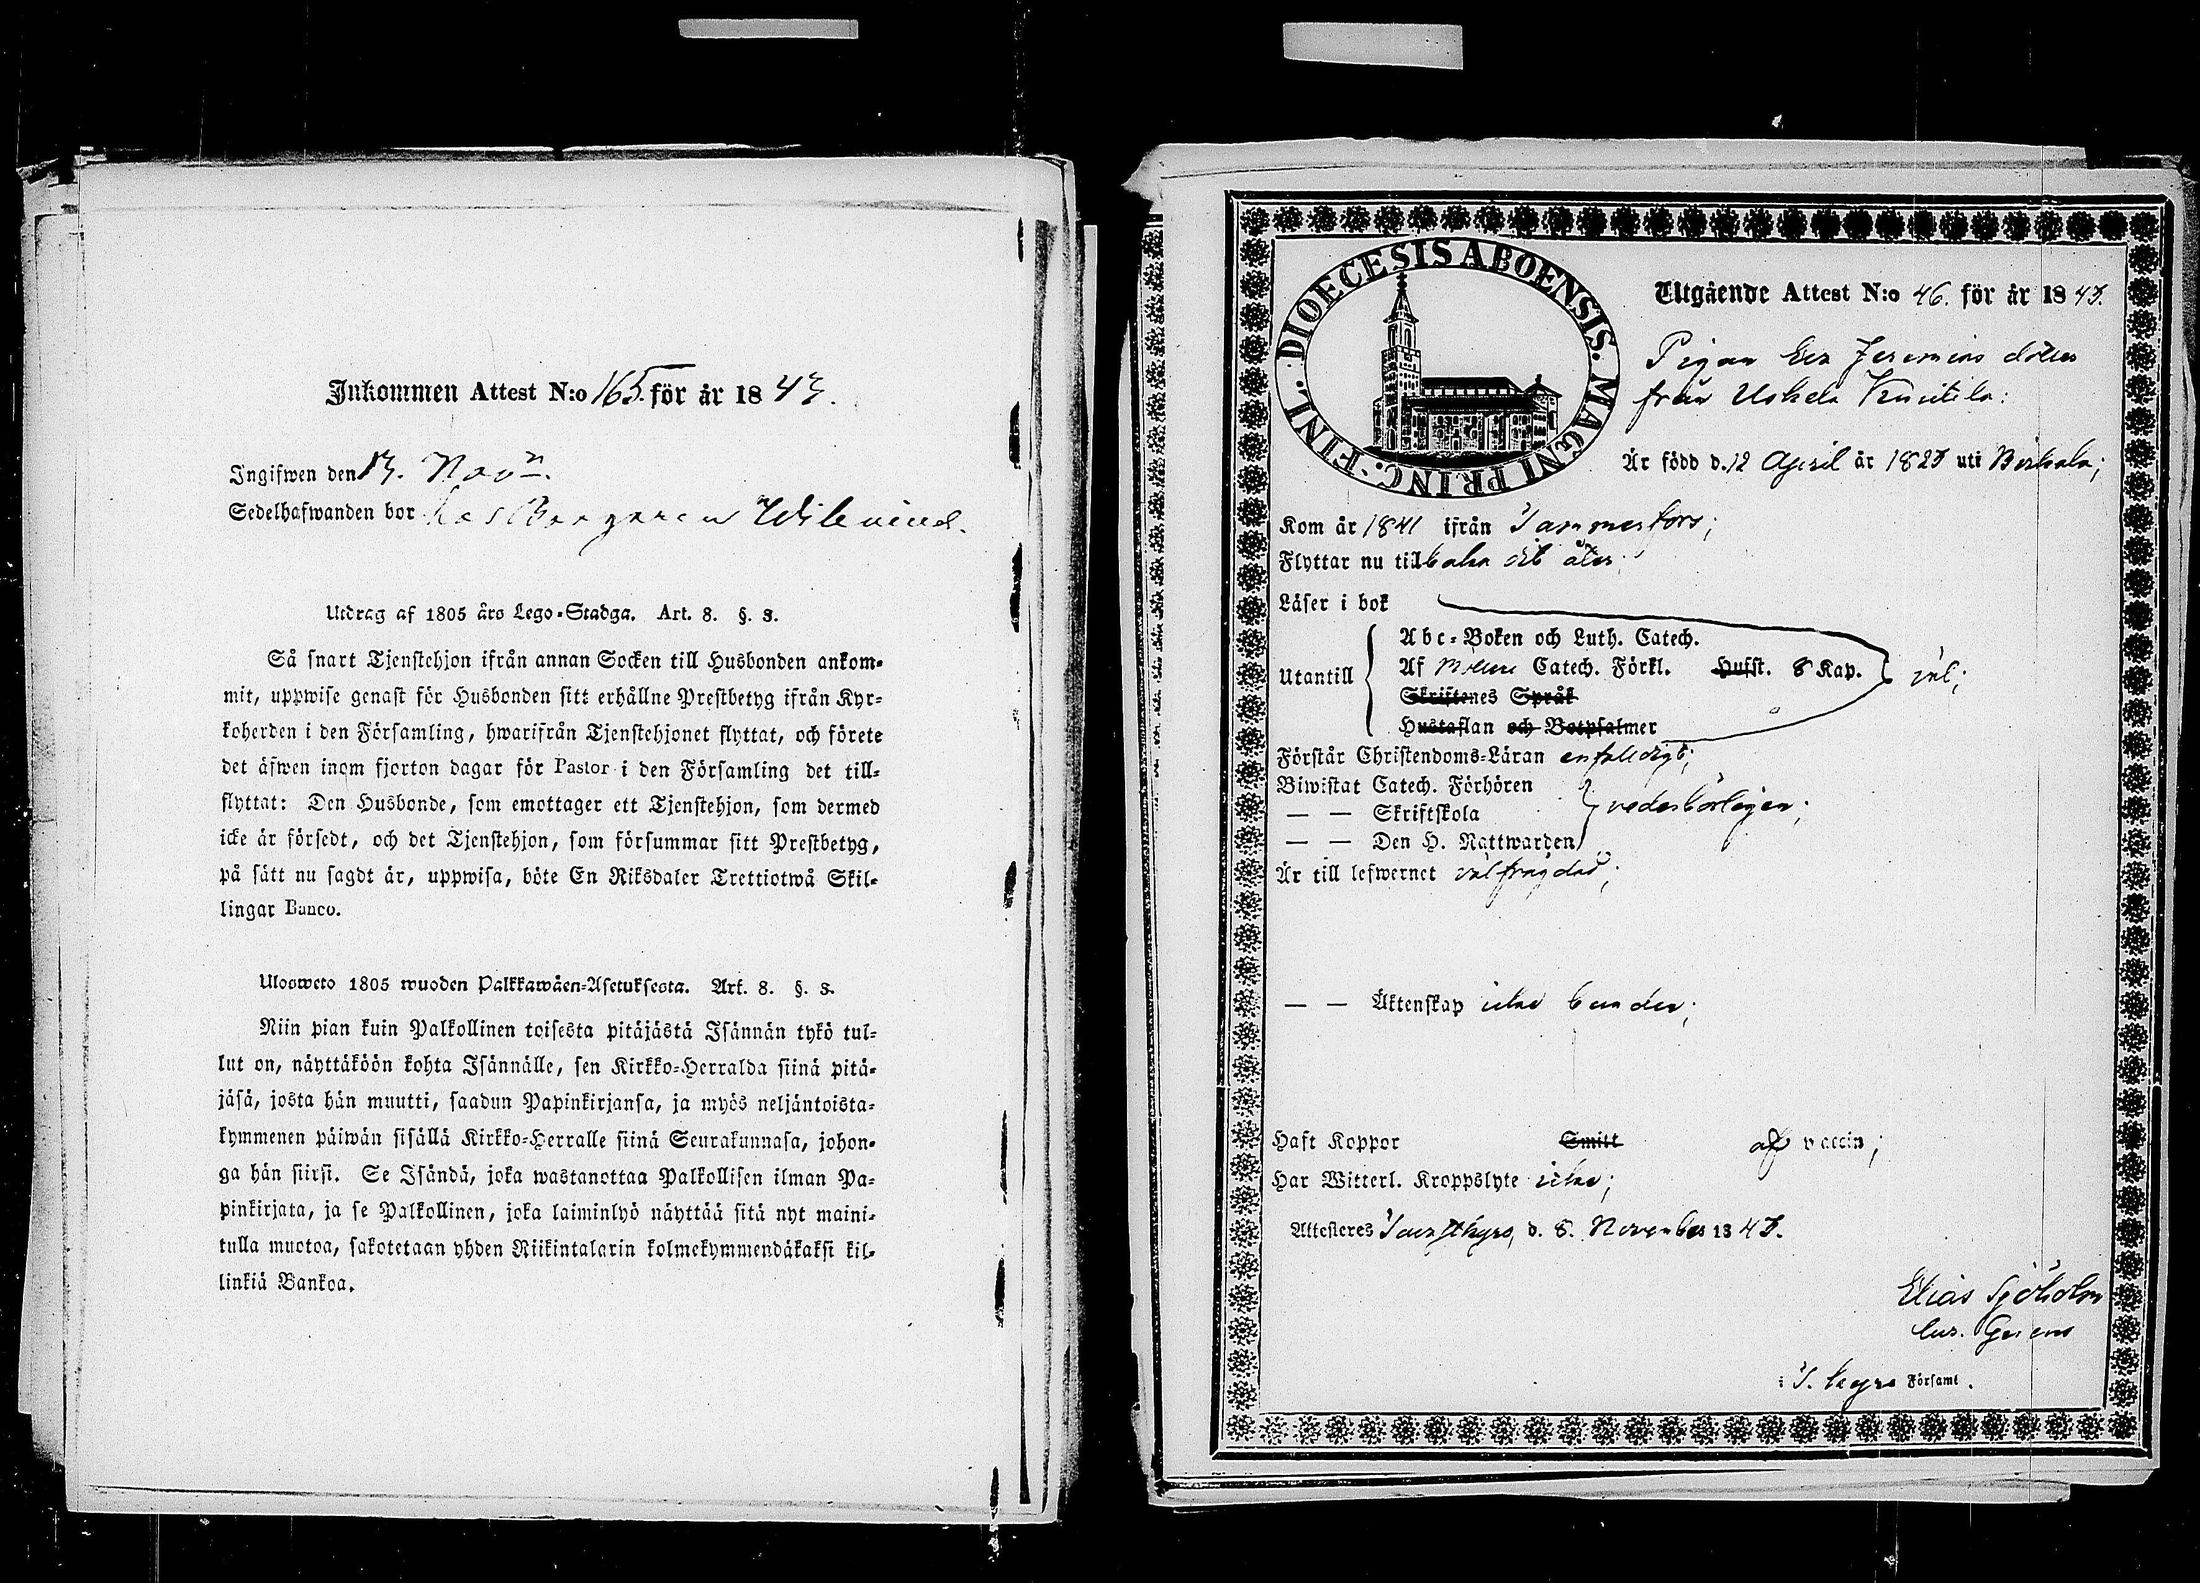 Inkommen Attest N:o 165. för år 1843.
Ingifwen den 13. Nov:
Sedelhafwanden bor hos Borgaren
Utdrag af 1805 års Lego-Stadga. Art. 8. §. 8.
Så snart Tjenstehjon ifrån annan Socken till Husbonden ankom-
mit, uppwise genast för Husbonden sitt erhållne Prestbetyg ifrån Kyr-
koherden i den Församling, hwarifrån Tjenstehjonet flyttat, och förete
det äfwen inom fjorton dagar för Pastor i den Församling det till-
flyttat: Den Husbonde, som emottager ett Tjenstehjon, som dermed
icke är försedt, och det Tjenstehjon, som försummar sitt Prestbetyg,
på sätt nu sagdt är, uppwisa, böte En Riksdaler Trettiotwå Skil-
lingar Banco.
Ulosweto 1805 wuoden Palkkawäen-Asetuksesta. Art. 8. §. 8.
Niin pian kuin Palkollinen toisesta pitäjästä Isännän tykö tul-
lut on, näyttäköön kohta Isännälle, sen Kirkko-Herralda siinä pitä-
jäsä, josta hän muutti, saadun Papinkirjansa, ja myös neljäntoista-
kymmenen päiwän sisällä Kirkko-Herralle siinä Seurakunnasa, johon-
ga hän siirsi. Se Isändä, joka wastanottaa Palkollisen ilman Pa-
pinkirjata, ja se Palkollinen, joka laiminlyö näyttää sitä nyt maini-
tulla muotoa, sakotetaan yhden Riikintalarin kolmekymmendäkaksi kil-
linkiä Bankoa.
DIOECESIS ABOENSIS. MAGNI PRINC. FINL.
Utgående Attest N:o 46. för år 1843.
Pigan Jeremias dotter
från Uskela
Är född d. 12 April år 1823 uti Birkala;
Kom år 1841 ifrån Tammerfors;
Flyttar nu tillbaka dit åter;
Läser i bok
Abc-Boken och Luth. Catech.
Utantill Af Catech. Förkl. Husst. 8 Kap. väl;
Skriftenes Språk
Hustaflan och Botpsalmer
Förstår Christendoms-Läran enfaldigt;
Biwistat Catech. Förhören
— — Skriftskola vederbörligen;
— — Den H. Nattwarden
Är till lefwernet välfrägdad;
— — Äktenskap icke bunden;
Haft Koppor Smitt af vaccin;
Har Witterl. Kroppslyte icke;
Attesteras Tavastkyro, d. 8. November 1843.
Elias Sjöholm
i T. kyro Församl.